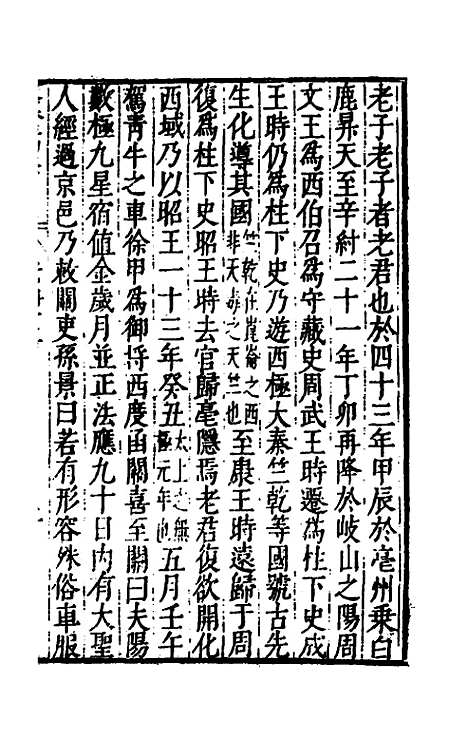 老子老子者老君也於四十三年甲辰於亳州乗白
鹿昇天至辛紂二十一年丁卯再降於岐山之陽周
文王為西伯召為守藏史周武王時遷為柱下史成
王時仍為柱下史乃遊西極大秦竺乾等國號古先
生化導其國竺乾在崑崙之西非天毒之天竺也至康王時遠歸于周
復為柱下史昭王時去官歸亳隱焉老君復欲開化
西域乃以昭王一十三年癸丑太上之無極元年也五月壬午
駕青牛之車徐甲為御将西度函關喜至關曰夫陽
數極九星宿值金歲月並正法應九十日内有大聖
人經過京邑乃敕關吏孫景曰若有形容殊俗車服